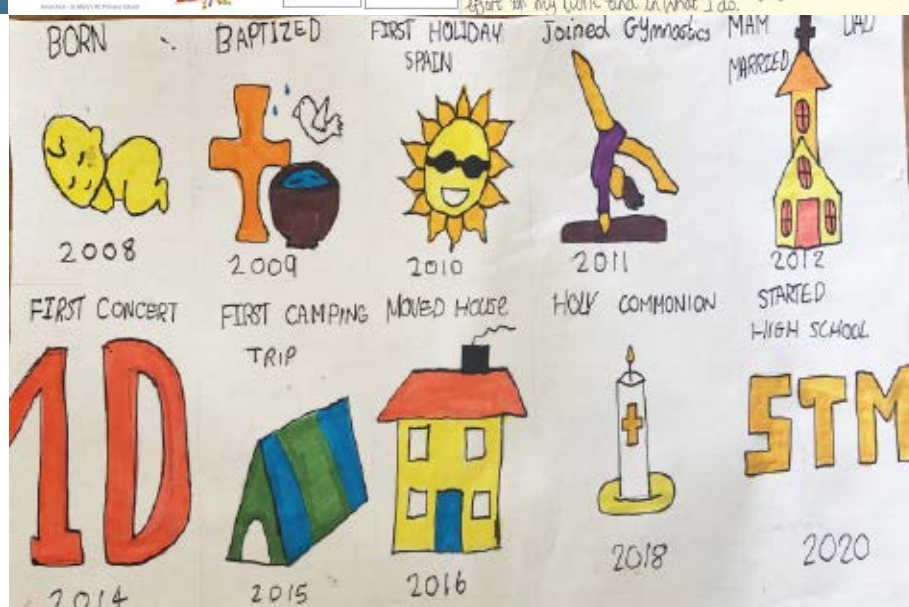 Amari Roll - St Mary's RC Primary School
effort on my work and in what I do.
BORN
2008
BAPTIZED
2009
FIRST HOLIDAY
SPAIN
2010
Joined Gymnastics
2011
MAM DAD
MARRIED
2012
FIRST CONCERT
1D
2014
FIRST CAMPING
TRIP
2015
MOVED HOUSE
2016
HOLY COMMONION
2018
STARTED
HIGH SCHOOL
STM
2020